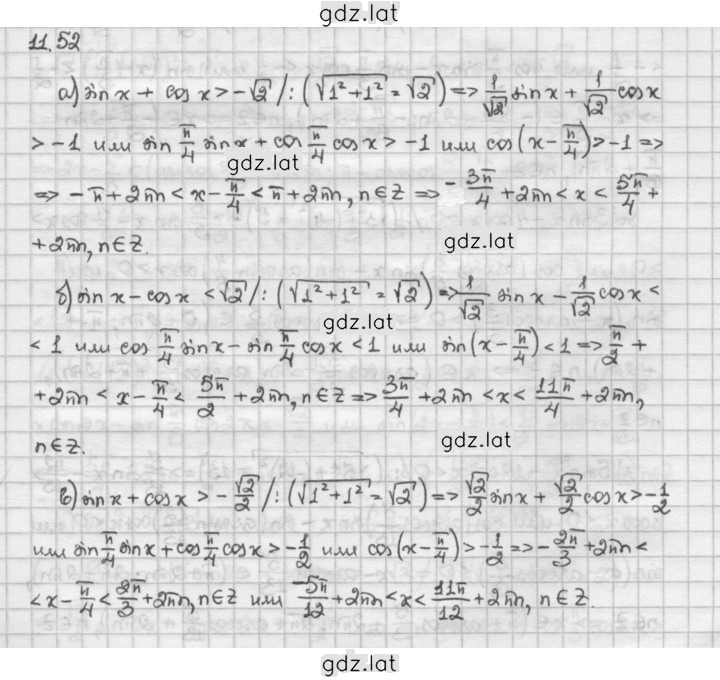 gdz.lat
11.52
а) sin x + cos x > -√2 /: (√1²+1² = √2) => 1/√2 sin x + 1/√2 cos x
> -1 или sin π/4 sin x + cos π/4 cos x > -1 или cos(x - π/4) > -1 =>
gdz.lat
=> -π + 2πn < x - π/4 < π + 2πn, n∈Z => -3π/4 + 2πn < x < 5π/4 +
+ 2πn, n∈Z.
gdz.lat
б) sin x - cos x < √2 /: (√1²+1² = √2) => 1/√2 sin x - 1/√2 cos x <
gdz.lat
< 1 или cos π/4 sin x - sin π/4 cos x < 1 или sin(x - π/4) < 1 => π/2 +
+ 2πn < x - π/4 < 5π/2 + 2πn, n∈Z => 3π/4 + 2πn < x < 11π/4 + 2πn,
n∈Z.
gdz.lat
в) sin x + cos x > -√2/2 /: (√1²+1² = √2) => √2/2 sin x + √2/2 cos x > -1/2
или sin π/4 sin x + cos π/4 cos x > -1/2 или cos(x - π/4) > -1/2 => -2π/3 + 2πn <
< x - π/4 < 2π/3 + 2πn, n∈Z или -5π/12 + 2πn < x < 11π/12 + 2πn, n∈Z.
gdz.lat